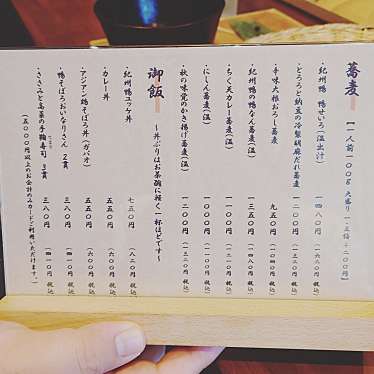 蕎麦【一人前100g 大盛り1.5倍+200円】
紀州鴨 鴨せいろ(温出汁) 一四八〇円(一六二八円 税込)
とろろと納豆の冷製胡麻だれ蕎麦 一二〇〇円(一三二〇円 税込)
辛味大根おろし蕎麦 九五〇円(一〇四五円 税込)
紀州鴨の鴨なん蕎麦(温) 一三五〇円(一四八〇円 税込)
ちく天カレー蕎麦(温) 一一〇〇円(一二一〇円 税込)
にしん蕎麦(温) 一〇〇〇円(一一〇〇円 税込)
秋の味覚のかき揚げ蕎麦(温) 一二〇〇円(一三二〇円 税込)
御飯 〜丼ぶりはお茶碗に軽く一杯ほどです〜
紀州鴨ユッケ丼 七五〇円(八二〇円 税込)
カレー丼 五五〇円(六〇〇円 税込)
アジアン鶏そぼろ丼(ガパオ) 五五〇円(六〇〇円 税込)
鴨そぼろおいなりさん 2貫 三八〇円(四一〇円 税込)
ささみと高菜の手鞠寿司 3貫 三八〇円(四一〇円 税込)
(5000円以上のお会計のみカードご利用いただけます。)